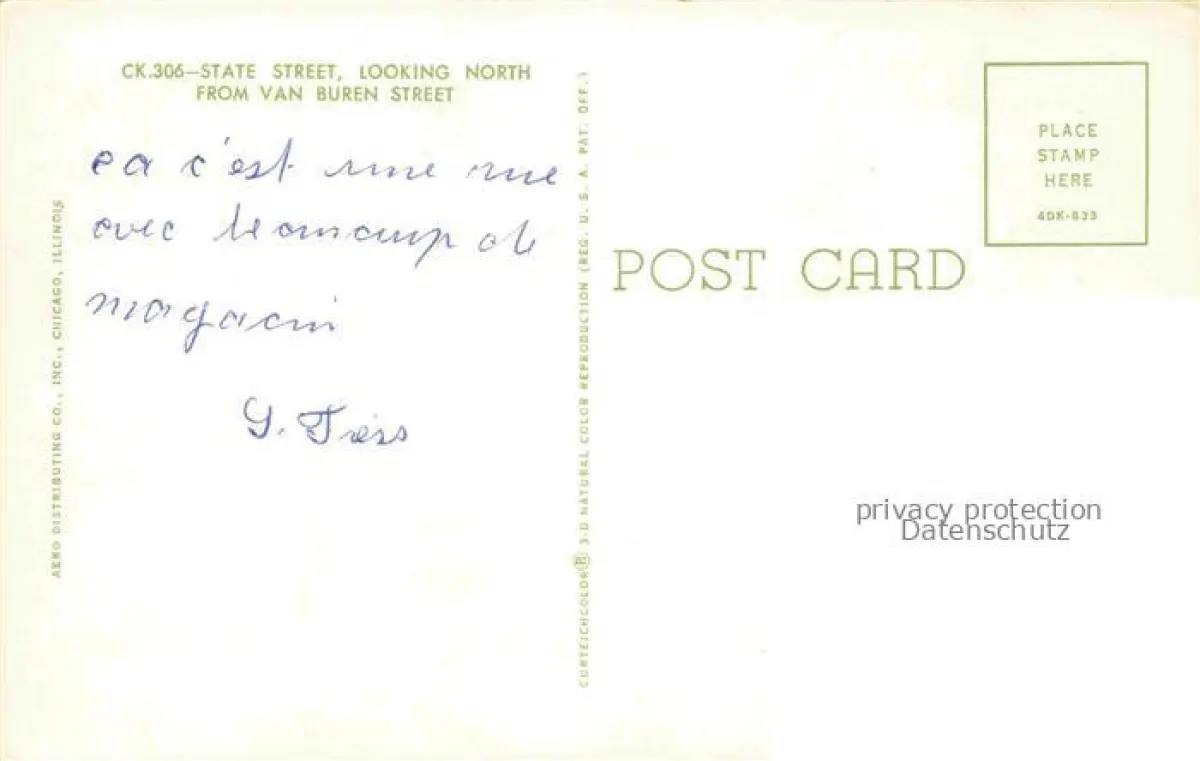 CK.306—STATE STREET, LOOKING NORTH
FROM VAN BUREN STREET
ca c'est une rue
avec beaucoup de
magacin
AERO DISTRIBUTING CO., INC., CHICAGO, ILLINOIS
CURTEICHCOLOR® 3-D NATURAL COLOR REPRODUCTION (REG. U. S. A. PAT. OFF.)
POST CARD
PLACE
STAMP
HERE
4DK-833
privacy protection
Datenschutz